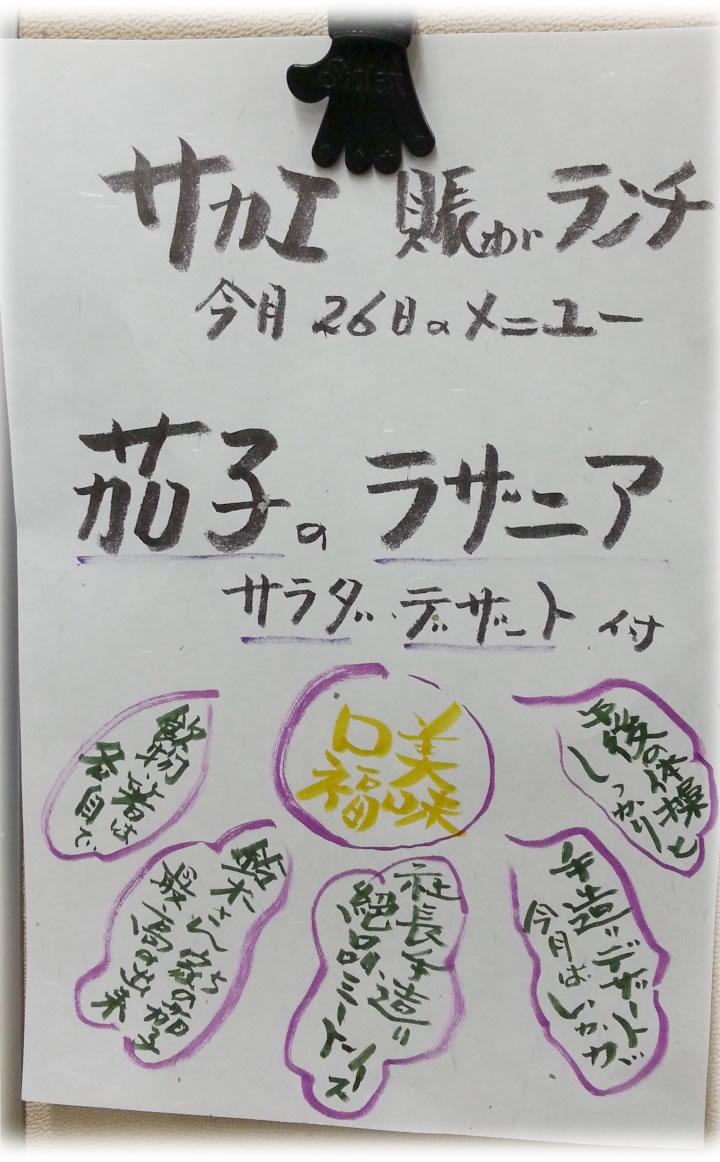 サカエ 賑わいランチ
今月 26日のメニュー
茄子の ラザニア
サラダ・デザート 付
美味
口福
午後の体操も
しっかり
飲物、箸は
各自で
手造りデザートが
今月はいかが
社長手造り
絶品、ミートソース
さん家の茄子
最高の出来